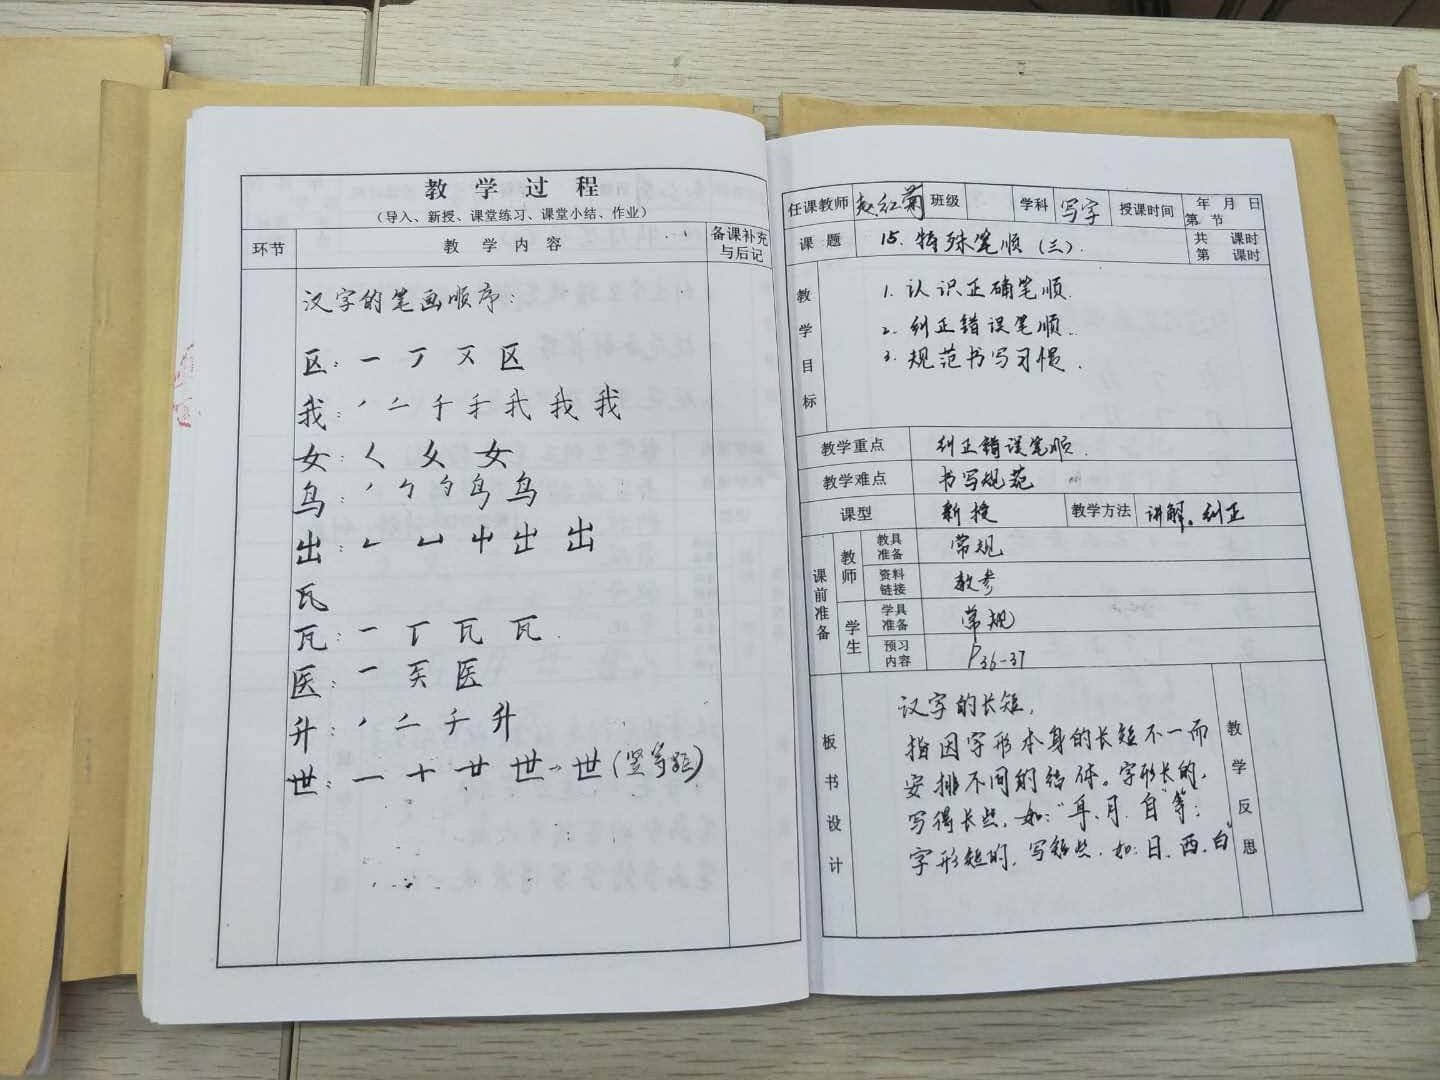 教学过程
（导入、新授、课堂练习、课堂小结、作业）
环节 教学内容 备课补充与后记
汉字的笔画顺序：
区：一 丆 又 区
我：丿 二 千 手 我 我 我
女：く 女 女
鸟：丿 鸟 鸟
出：凵 屮 出 出
瓦
瓦：一 瓦 瓦
医：一 医
升：丿 二 千 升
世：一 十 廿 世 世（竖等距）
任课教师 赵红菊 班级 学科 写字 授课时间 年 月 日 第 节
课题 15. 特殊笔顺（三）. 共 课时 第 课时
教学目标
1. 认识正确笔顺.
2. 纠正错误笔顺.
3. 规范书写习惯.
教学重点 纠正错误笔顺.
教学难点 书写规范
课型 新授 教学方法 讲解。纠正
课前准备
教师 教具准备 常规
资料链接 教参
学生 学具准备 常规
预习内容 P36-37
板书设计
汉字的长短,
指因字形本身的长短不一而
安排不同的结体。字形长的,
写得长些,如:“耳、月、自”等;
字形短的,写短些,如:日、西、白
教学反思